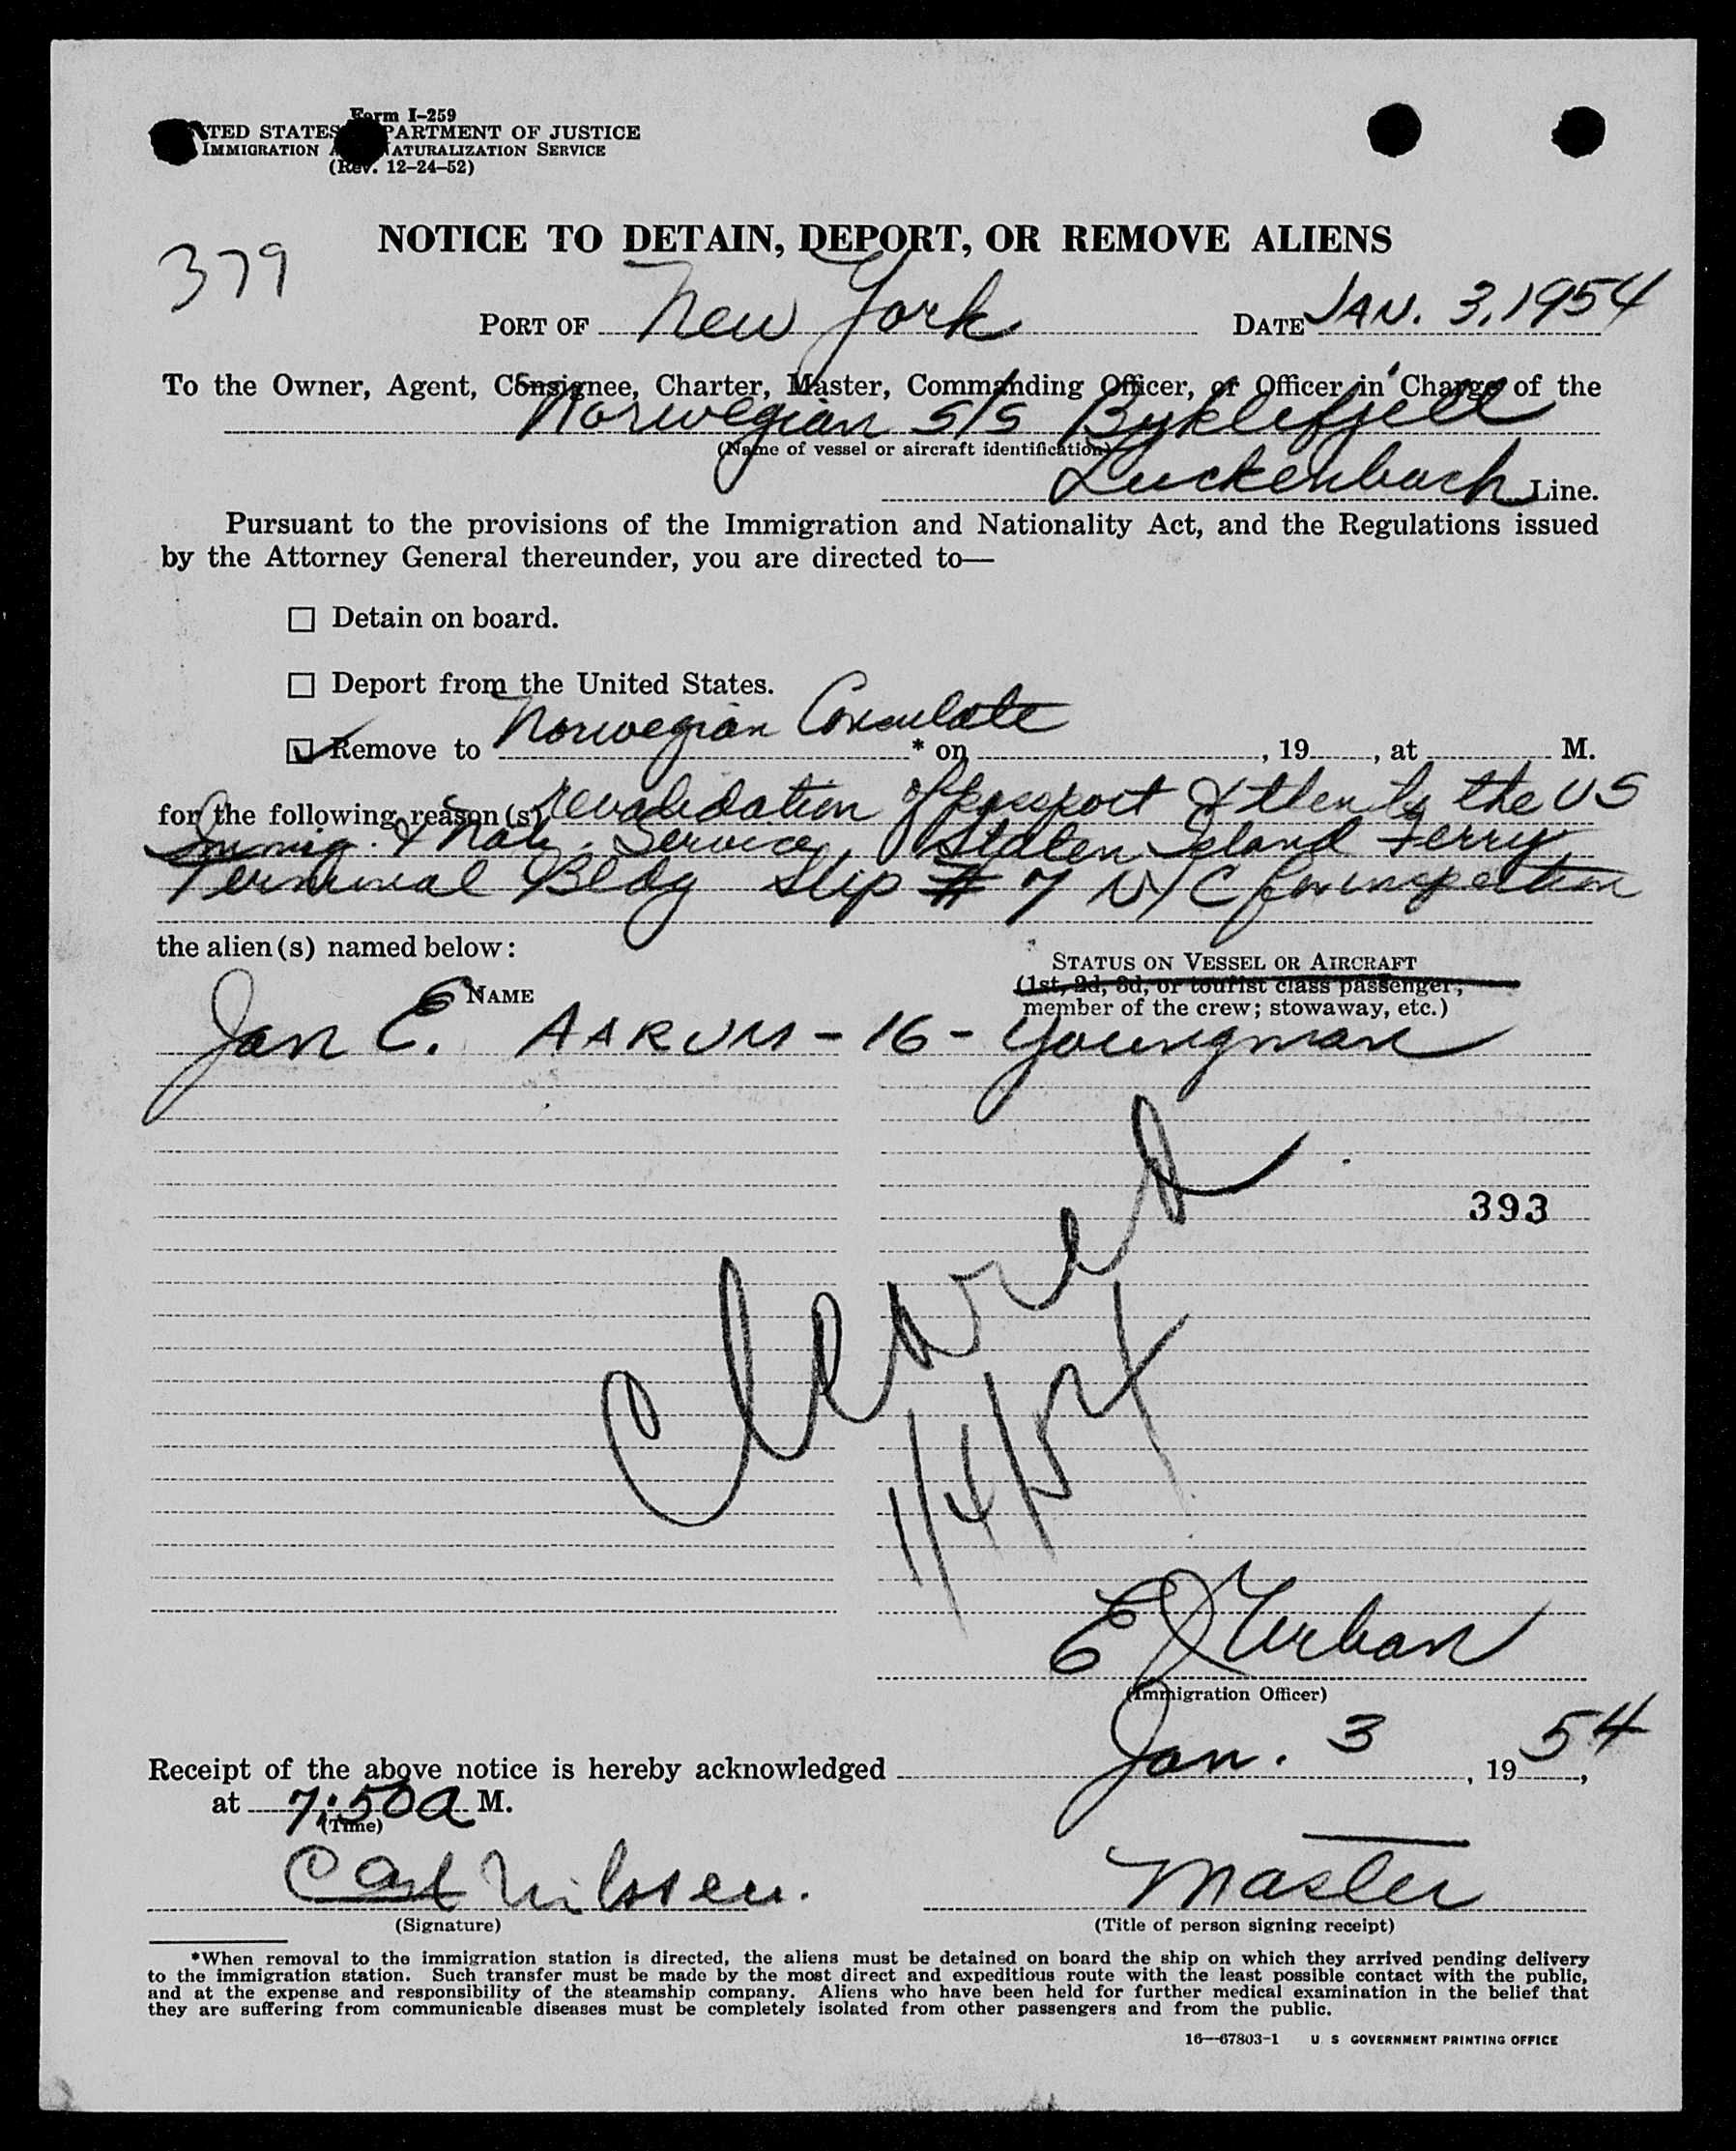 Form I-259
UNITED STATES DEPARTMENT OF JUSTICE
IMMIGRATION AND NATURALIZATION SERVICE
(Rev. 12-24-52)
379
NOTICE TO DETAIN, DEPORT, OR REMOVE ALIENS
PORT OF New York DATE JAN. 3, 1954
To the Owner, Agent, Consignee, Charter, Master, Commanding Officer, or Officer in Charge of the
Norwegian S/S Byklefjell
(Name of vessel or aircraft identification)
Luckenbach Line.
Pursuant to the provisions of the Immigration and Nationality Act, and the Regulations issued
by the Attorney General thereunder, you are directed to—
☐ Detain on board.
☐ Deport from the United States.
☑ Remove to Norwegian Consulate * on , 19 , at M.
for the following reason(s) revalidation of passport & then to the US
Immig. & Nat. Service, Staten Island Ferry
Terminal Bldg Slip # 7 NYC for inspection
the alien(s) named below:
STATUS ON VESSEL OR AIRCRAFT
NAME (1st, 2d, 3d, or tourist class passenger;
member of the crew; stowaway, etc.)
Jan E. AARUM - 16 - Youngman
393
Cleared
1/4/54
E J Urban
(Immigration Officer)
Receipt of the above notice is hereby acknowledged Jan. 3, 1954,
at 7:50 a M.
(Time)
Carl Nilssen. Master
(Signature) (Title of person signing receipt)
*When removal to the immigration station is directed, the aliens must be detained on board the ship on which they arrived pending delivery
to the immigration station. Such transfer must be made by the most direct and expeditious route with the least possible contact with the public,
and at the expense and responsibility of the steamship company. Aliens who have been held for further medical examination in the belief that
they are suffering from communicable diseases must be completely isolated from other passengers and from the public.
16—67803-1 U S GOVERNMENT PRINTING OFFICE